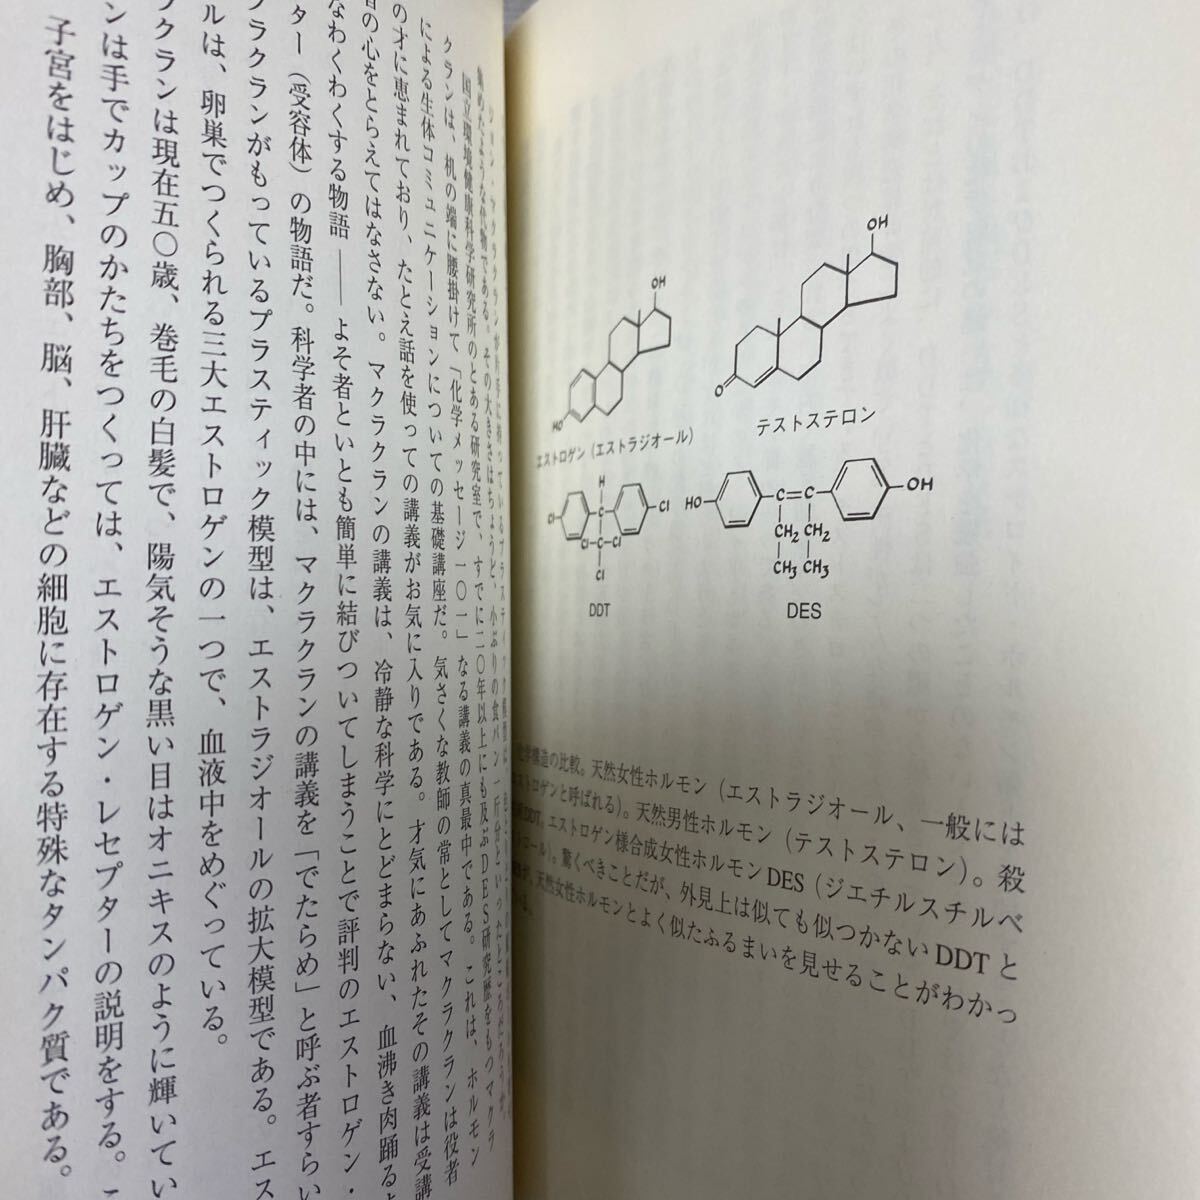 OH
HO
エストロゲン(エストラジオール)
OH
O
テストステロン
H
Cl C Cl
Cl C Cl
Cl
DDT
HO C=C OH
CH2 CH2
CH3 CH3
DES
化学構造の比較。天然女性ホルモン(エストラジオール、一般には
エストロゲンと呼ばれる)。天然男性ホルモン(テストステロン)。殺
DDT。エストロゲン様合成女性ホルモンDES(ジエチルスチルベ
ロール)。驚くべきことだが、外見上は似ても似つかないDDTと
DESが、天然女性ホルモンとよく似たふるまいを見せることがわかっ
いる。
ジョン・マクラクランが片手に持っているプラスティック模型は、
集めたような代物である。その大きさはちょうど、小ぶりの食パン一斤分といったところだろうか。
国立環境健康科学研究所のとある研究室で、すでに二〇年以上にも及ぶDES研究歴をもつマクラ
クランは、机の端に腰掛けて「化学メッセージ一〇一」なる講義の真最中である。これは、ホルモン
による生体コミュニケーションについての基礎講座だ。気さくな教師の常としてマクラクランは役者
の才に恵まれており、たとえ話を使っての講義がお気に入りである。才気にあふれたその講義は受講
者の心をとらえてはなさない。マクラクランの講義は、冷静な科学にとどまらない、血沸き肉踊るよ
なわくわくする物語――よそ者といとも簡単に結びついてしまうことで評判のエストロゲン・
ター(受容体)の物語だ。科学者の中には、マクラクランの講義を「でたらめ」と呼ぶ者すらい
ラクランがもっているプラスティック模型は、エストラジオールの拡大模型である。エス
ルは、卵巣でつくられる三大エストロゲンの一つで、血液中をめぐっている。
ラクランは現在五〇歳、巻毛の白髪で、陽気そうな黒い目はオニキスのように輝いてい
ンは手でカップのかたちをつくっては、エストロゲン・レセプターの説明をする。こ
子宮をはじめ、胸部、脳、肝臓などの細胞に存在する特殊なタンパク質である。